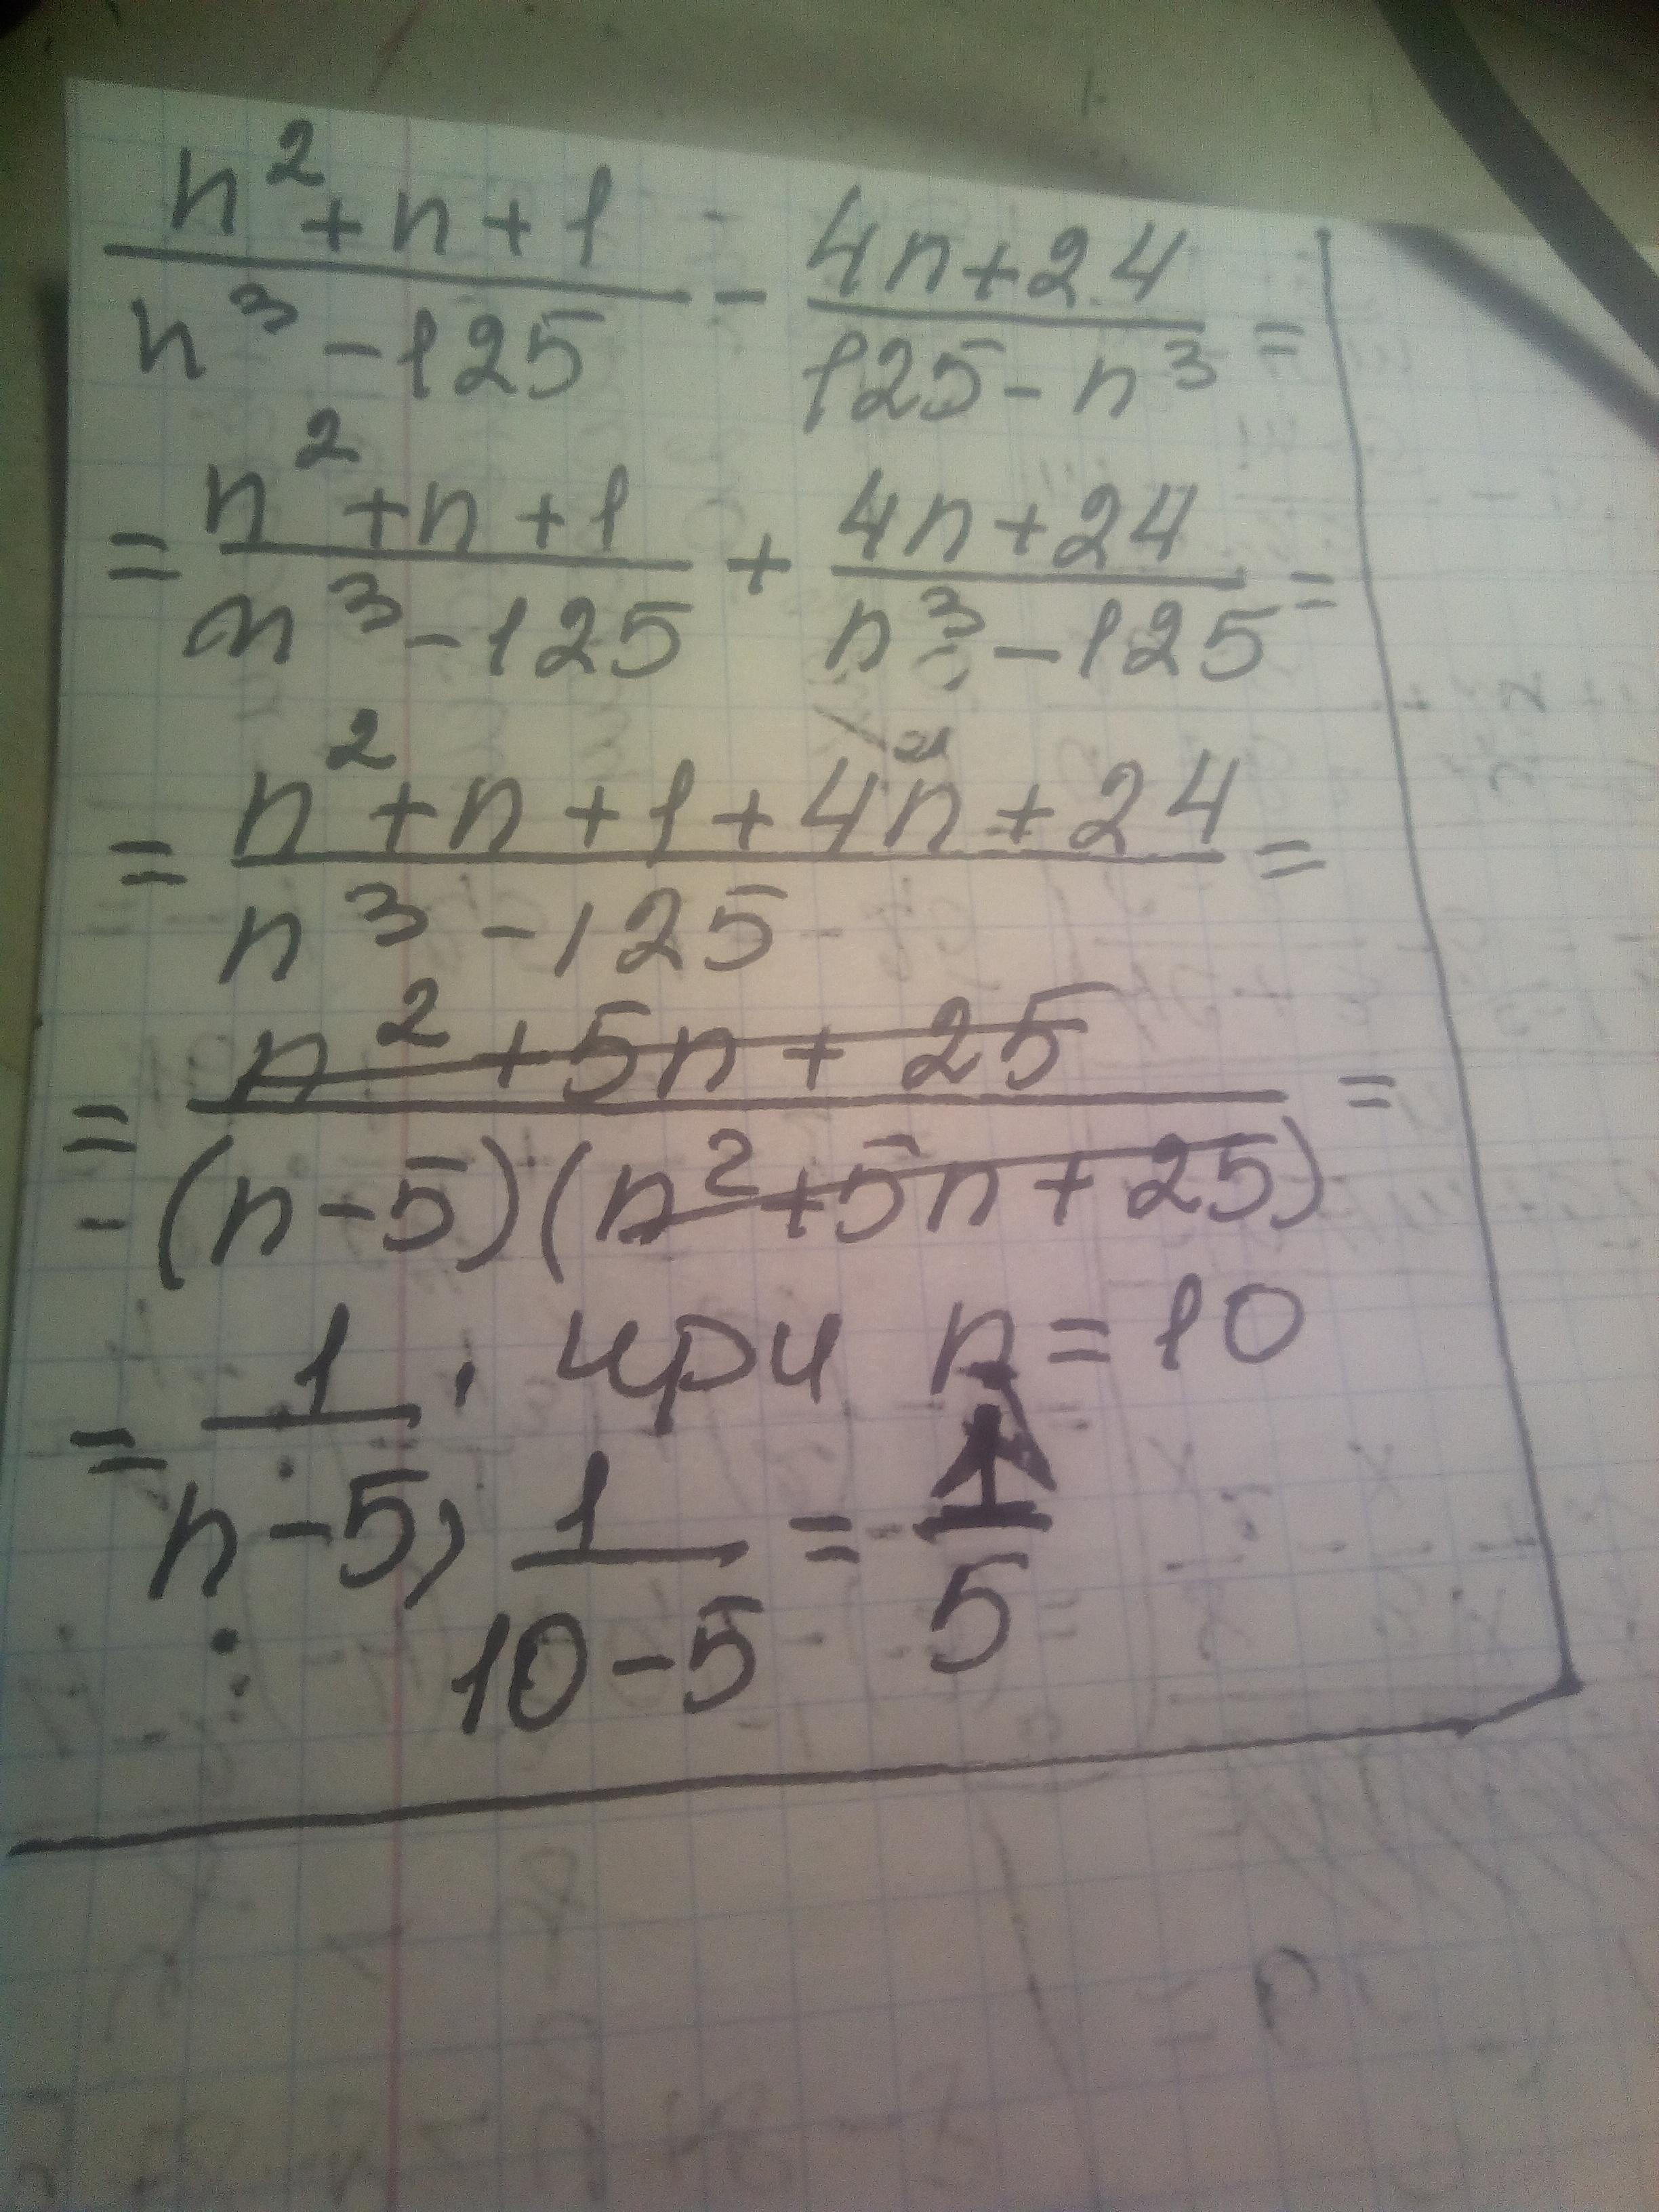 n²+n+1/n³-125 - 4n+24/125-n³ =
= n²+n+1/n³-125 + 4n+24/n³-125 =
= n²+n+1+4n+24/n³-125 =
= n²+5n+25/(n-5)(n²+5n+25) =
= 1/n-5, при n=10
1/10-5 = 1/5